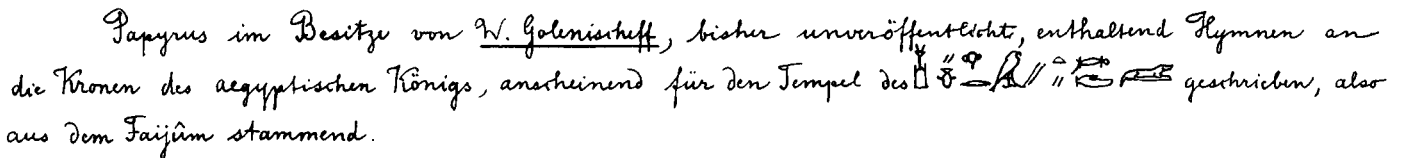 Papyrus im Besitze von W. Golenischeff, bisher unveröffentlicht, enthaltend Hymnen an
die Kronen des aegyptischen Königs, anscheinend für den Tempel des geschrieben, also
aus dem Faijûm stammend.